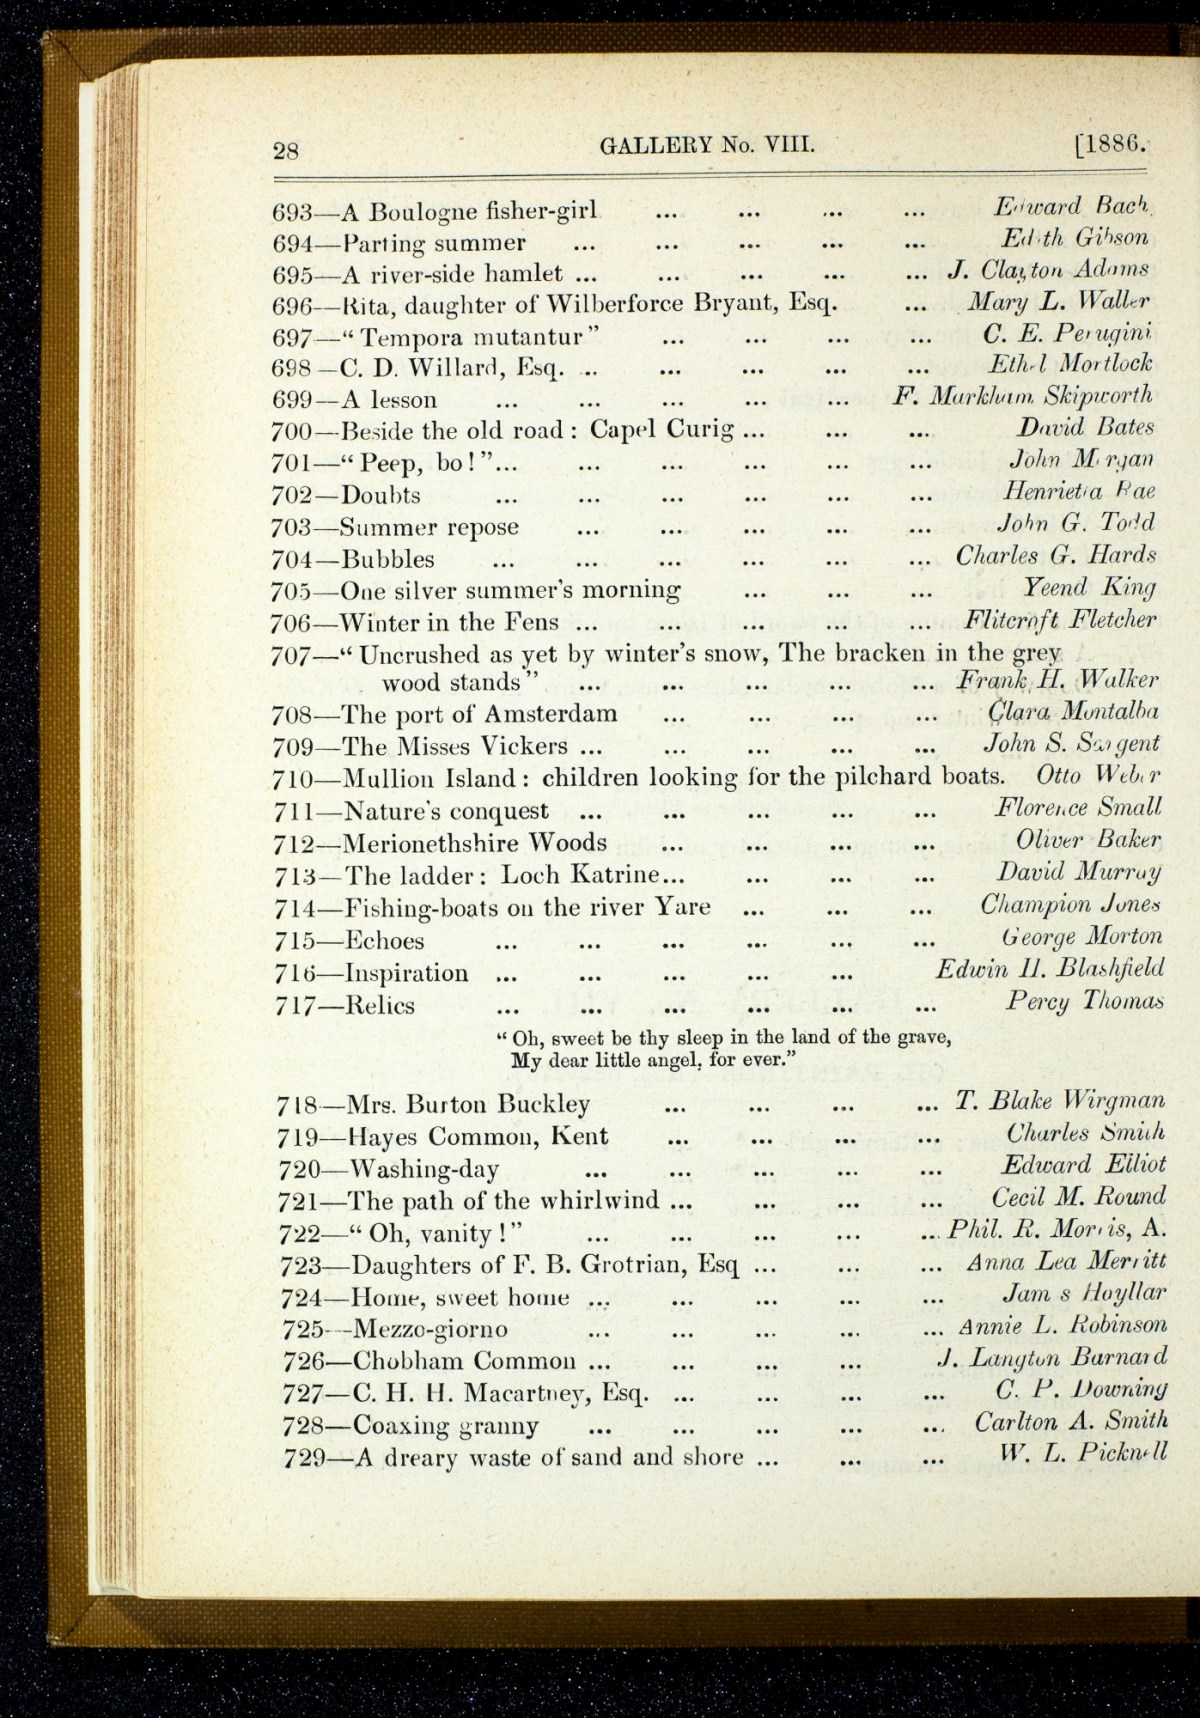 28 GALLERY No. VIII. [1886.
693—A Boulogne fisher-girl ... ... ... ... Edward Bach
694—Parting summer ... ... ... ... ... Edith Gibson
695—A river-side hamlet ... ... ... ... ... J. Clayton Adams
696—Rita, daughter of Wilberforce Bryant, Esq. ... Mary L. Waller
697—“Tempora mutantur” ... ... ... ... C. E. Perugini
698—C. D. Willard, Esq. ... ... ... ... ... Ethel Mortlock
699—A lesson ... ... ... ... ... F. Markham Skipworth
700—Beside the old road: Capel Curig ... ... ... David Bates
701—“Peep, bo!”... ... ... ... ... ... John Morgan
702—Doubts ... ... ... ... ... ... Henrietta Rae
703—Summer repose ... ... ... ... ... John G. Todd
704—Bubbles ... ... ... ... ... ... Charles G. Hards
705—One silver summer's morning ... ... ... Yeend King
706—Winter in the Fens ... ... ... ... ... Flitcroft Fletcher
707—“Uncrushed as yet by winter's snow, The bracken in the grey
wood stands” ... ... ... ... ... Frank H. Walker
708—The port of Amsterdam ... ... ... ... Clara Montalba
709—The Misses Vickers ... ... ... ... ... John S. Sargent
710—Mullion Island: children looking for the pilchard boats. Otto Weber
711—Nature's conquest ... ... ... ... ... Florence Small
712—Merionethshire Woods ... ... ... ... Oliver Baker
713—The ladder: Loch Katrine... ... ... ... David Murray
714—Fishing-boats on the river Yare ... ... ... Champion Jones
715—Echoes ... ... ... ... ... ... George Morton
716—Inspiration ... ... ... ... ... Edwin H. Blashfield
717—Relics ... ... ... ... ... ... Percy Thomas
“Oh, sweet be thy sleep in the land of the grave,
My dear little angel, for ever.”
718—Mrs. Burton Buckley ... ... ... ... T. Blake Wirgman
719—Hayes Common, Kent ... ... ... ... Charles Smith
720—Washing-day ... ... ... ... ... Edward Elliot
721—The path of the whirlwind ... ... ... ... Cecil M. Round
722—“Oh, vanity!” ... ... ... ... ... Phil. R. Morris, A.
723—Daughters of F. B. Grotrian, Esq ... ... ... Anna Lea Merritt
724—Home, sweet home ... ... ... ... ... James Hayllar
725—Mezzo-giorno ... ... ... ... ... Annie L. Robinson
726—Chobham Common ... ... ... ... J. Langton Barnard
727—C. H. H. Macartney, Esq. ... ... ... ... C. P. Downing
728—Coaxing granny ... ... ... ... ... Carlton A. Smith
729—A dreary waste of sand and shore ... ... ... W. L. Picknell